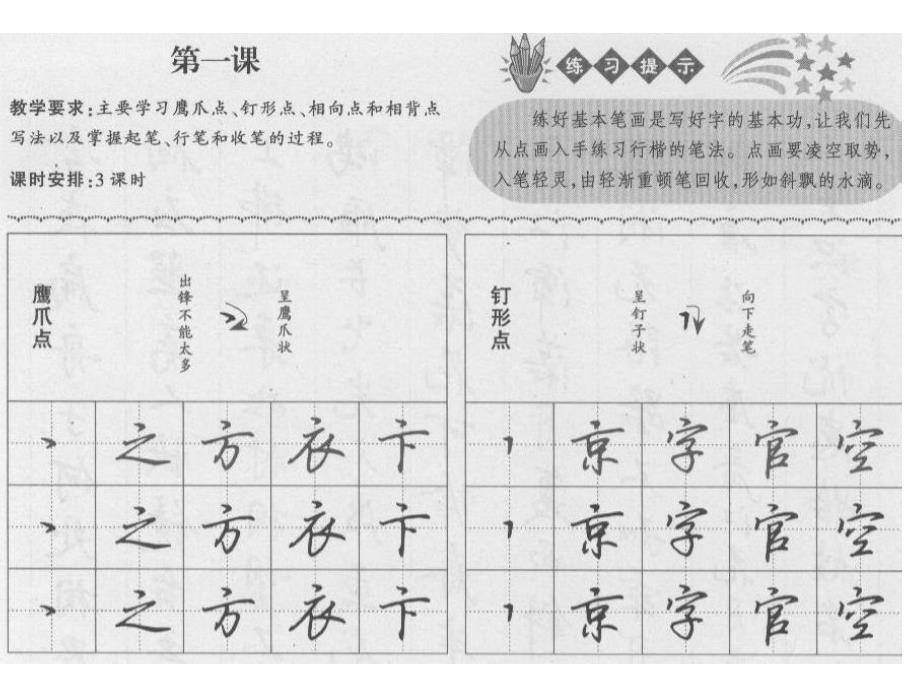 第一课
教学要求:主要学习鹰爪点、钉形点、相向点和相背点
写法以及掌握起笔、行笔和收笔的过程。
课时安排:3课时
练习提示
练好基本笔画是写好字的基本功,让我们先
从点画入手练习行楷的笔法。点画要凌空取势,
入笔轻灵,由轻渐重顿笔回收,形如斜飘的水滴。
鹰爪点
出锋不能太多
呈鹰爪状
钉形点
呈钉子状
向下走笔
之 方 衣 卞
京 字 官 空
之 方 衣 卞
京 字 官 空
之 方 衣 卞
京 字 官 空